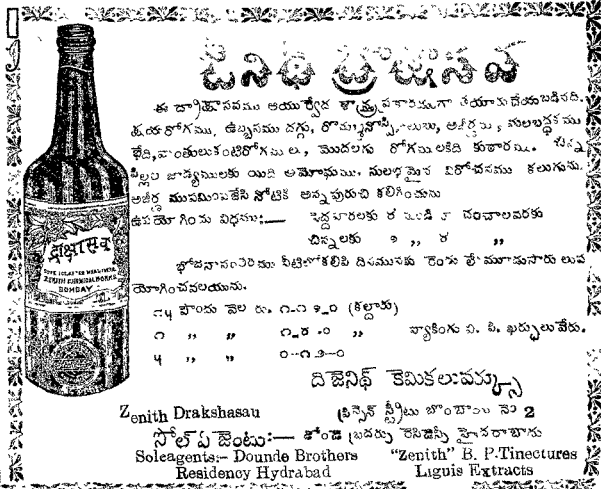 జెనిథ్ ద్రాక్షాసవ
ఈ ద్రాక్షాసవము ఆయుర్వేద శాస్త్ర ప్రకారముగా తయారుచేయబడినది.
క్షయరోగము, ఉబ్బసము దగ్గు, రొమ్మునొప్పి, అజీర్ణము, మలబద్ధకము
భేది, వాంతులు కంటిరోగములు, మొదలగు రోగములకిది కుఠారము. చిన్న
పిల్లల జాడ్యములకు యిది అమోఘము. సులభమైన విరోచనము కలుగును.
అజీర్ణ ముపశమింపజేసి నోటికి అన్నపురుచి కలిగించును
ఉపయోగించు విధము:— పెద్దవారలకు ౨ నుండి చంచాలవరకు
చిన్నలకు ౧ ,, ౨ ,,
భోజనానంతరము నీటిలోకలిపి దినమునకు రెండు లేక మూడుసారులుప
యోగించవలయును.
పౌండు వెల రు. (కల్దారు)
౧ ,, ,, ,, ప్యాకింగు వి. పి. ఖర్చులువేరు.
,, ,,
ది జెనిథ్ కెమికలువర్క్సు
Zenith Drakshasau
ప్రిన్సెస్ స్ట్రీటు బొంబాయి నెం 2
సోల్ ఏజెంటు:— డోండె బ్రదర్సు రెసిడెన్సీ హైదరాబాదు
Soleagents:- Dounde Brothers
Residency Hydrabad
"Zenith" B. P.Tinectures
Liguis Extracts
द्राक्षासव
ZENITH CHEMICAL WORKS
BOMBAY